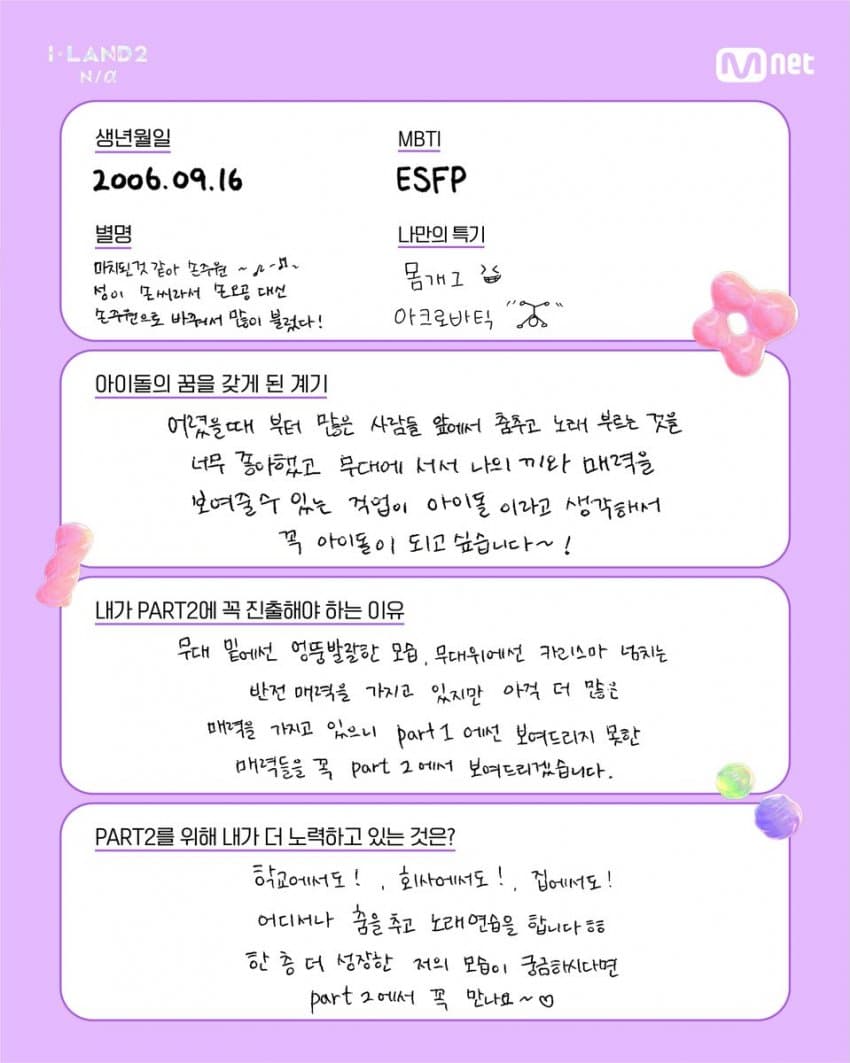 I·LAND2
N/α
Mnet
생년월일
2006.09.16
MBTI
ESFP
별명
마치된것 같아 손주원 ~♪~♬~
성이 손씨라서 손오공 대신
손주원으로 바꿔서 많이 불렀다!
나만의 특기
몸개그
아크로바틱
아이돌의 꿈을 갖게 된 계기
어렸을때 부터 많은 사람들 앞에서 춤추고 노래 부르는 것을
너무 좋아했고 무대에 서서 나의 끼와 매력을
보여줄수 있는 직업이 아이돌 이라고 생각해서
꼭 아이돌이 되고 싶습니다~!
내가 PART2에 꼭 진출해야 하는 이유
무대 밑에선 엉뚱발랄한 모습, 무대위에선 카리스마 넘치는
반전 매력을 가지고 있지만 아직 더 많은
매력을 가지고 있으니 part 1 에선 보여드리지 못한
매력들을 꼭 part 2에서 보여드리겠습니다.
PART2를 위해 내가 더 노력하고 있는 것은?
학교에서도!, 회사에서도!, 집에서도!
어디서나 춤을 추고 노래연습을 합니다ㅎㅎ
한 층 더 성장한 저의 모습이 궁금하시다면
part 2에서 꼭 만나요~♡